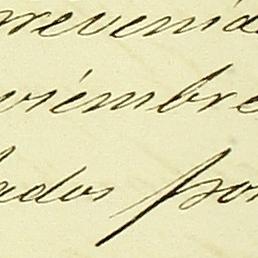 revenid
viémbre
ados por